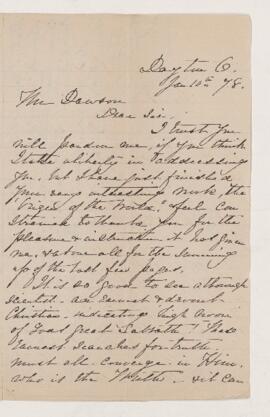 Dayton O.
Jan 10th 78.
Mr Dawson
Dear Sir.
I trust you
will pardon me, if you think
I take a liberty in addressing
you. but I have just finished
your very interesting work, the
"Origin of the World" & feel con
strained to thank you for the
pleasure & instruction it has given
me, & above all for the summing
up of the last few pages.
It is so good to see a thorough
scientist - an earnest & devout
Christian - indicating high noon
of God's great Sabbath! Two
earnest searches for truth
must all converge in Him,
who is the Truth - & it can